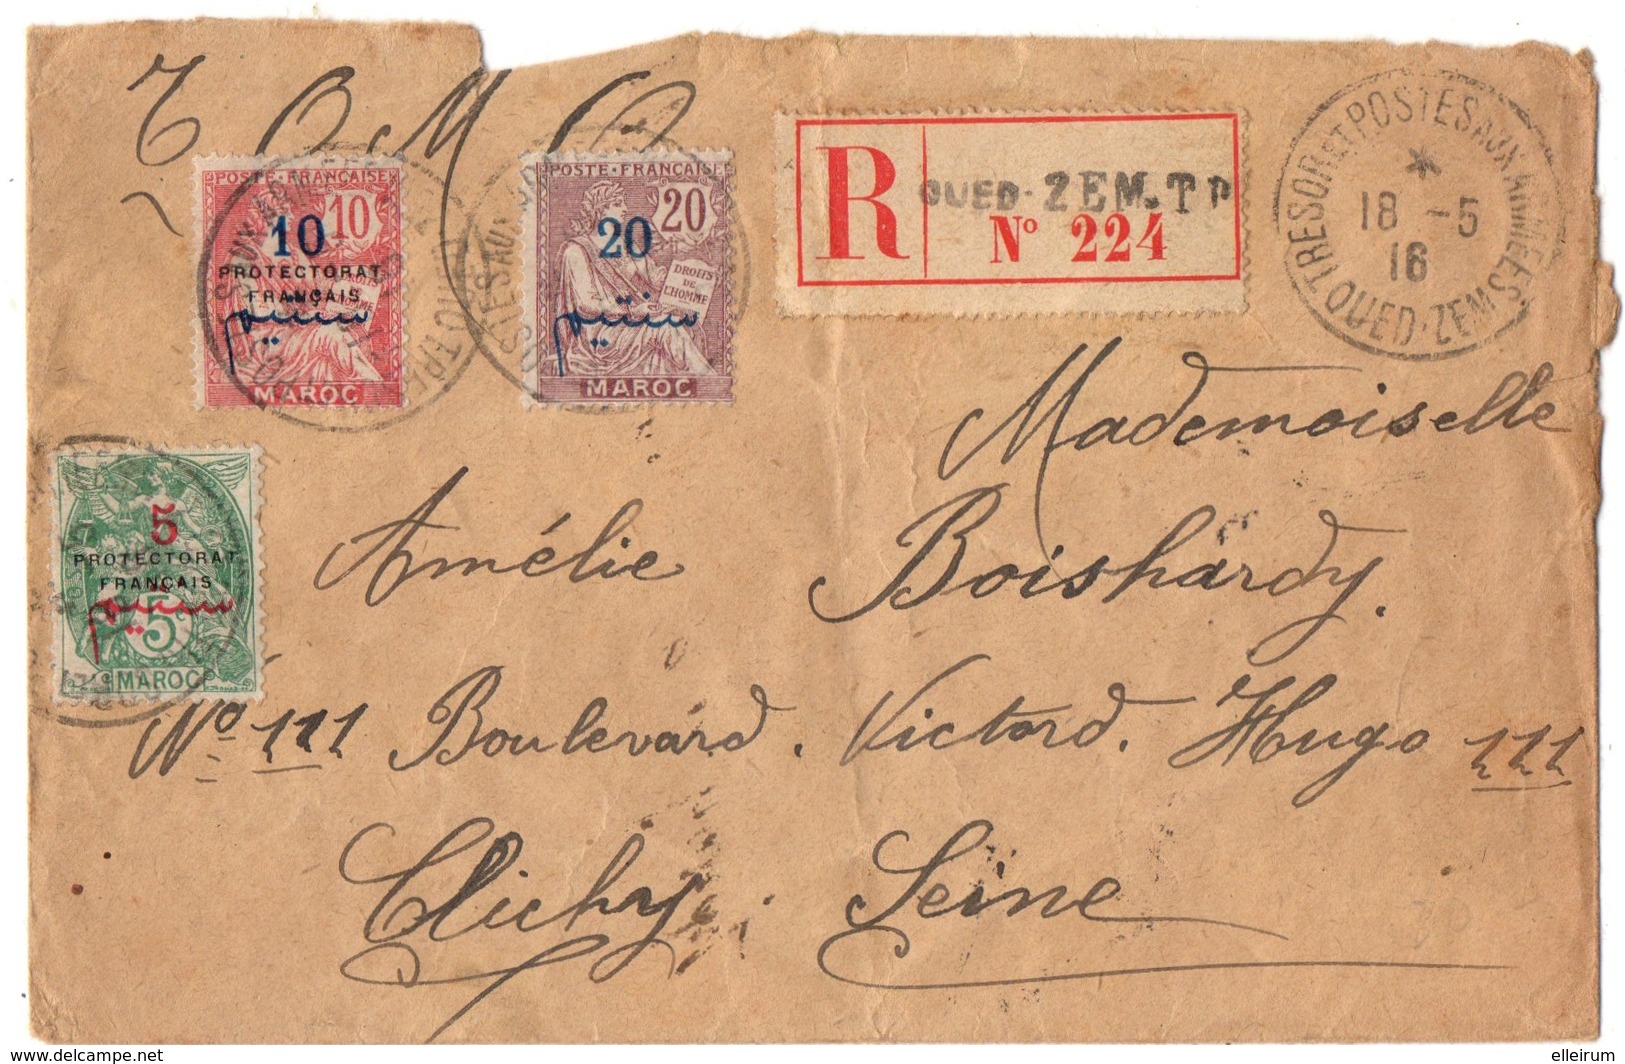 T O M
POSTE·FRANÇAISE
10
10
PROTECTORAT
FRANÇAIS
سنتيم
MAROC
POSTE·FRANÇAISE
20
20
DROITS
DE
L'HOMME
سنتيم
MAROC
R
OUED-ZEM.T P
N° 224
TRESOR ET POSTES AUX ARMEES
*
18 -5
16
OUED-ZEM
5
PROTECTORAT
FRANÇAIS
سنتيم
5
MAROC
Mademoiselle
Amélie Boishardy.
N° 111 Boulevard. Victord. Hugo 111
Clichy. Seine
www.delcampe.net
elleirum